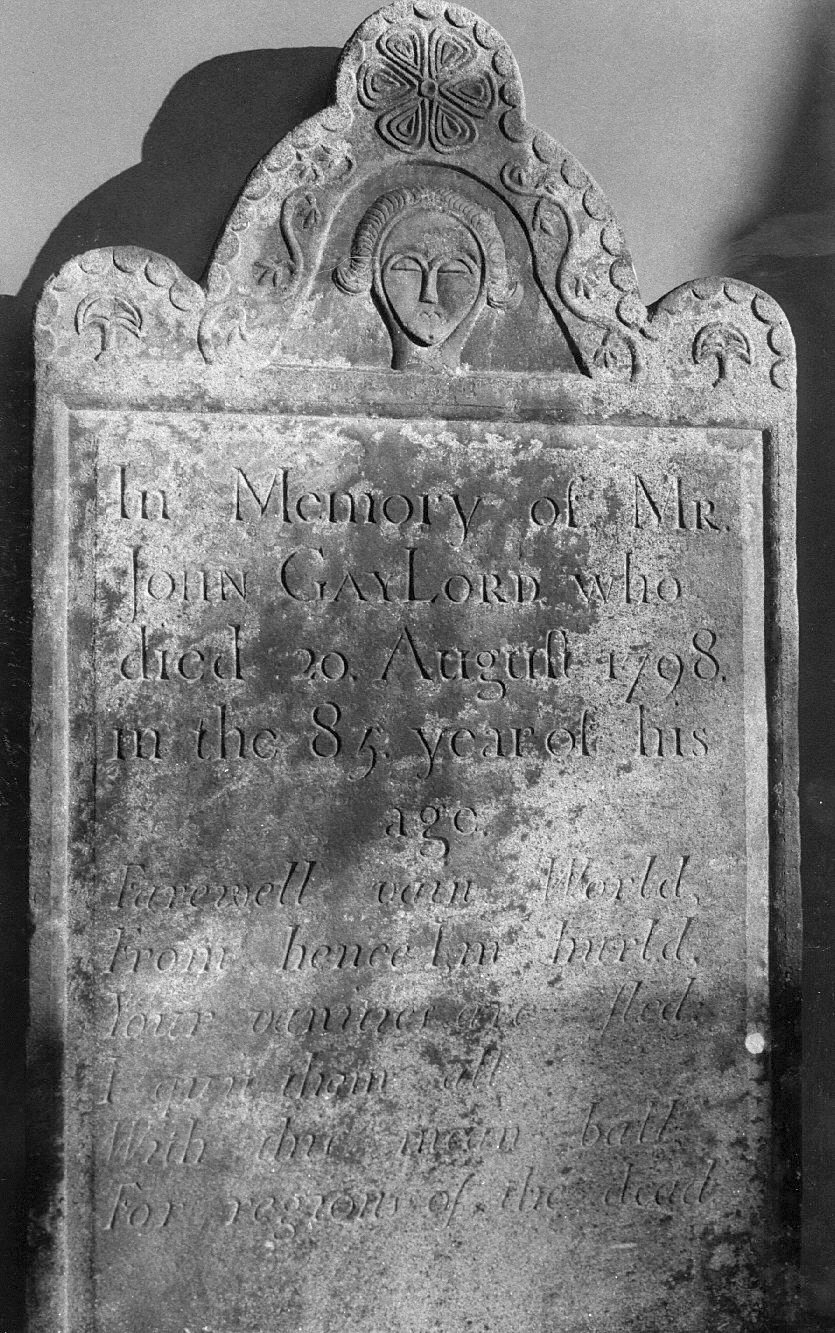 In Memory of Mr.
John GayLord. who
died 20. August 1798.
in the 85. year of his
age.
Farewell vain World,
From hence I,m hurld,
Your vanities are fled;
I quit them all
With this mean ball
For regions of the dead